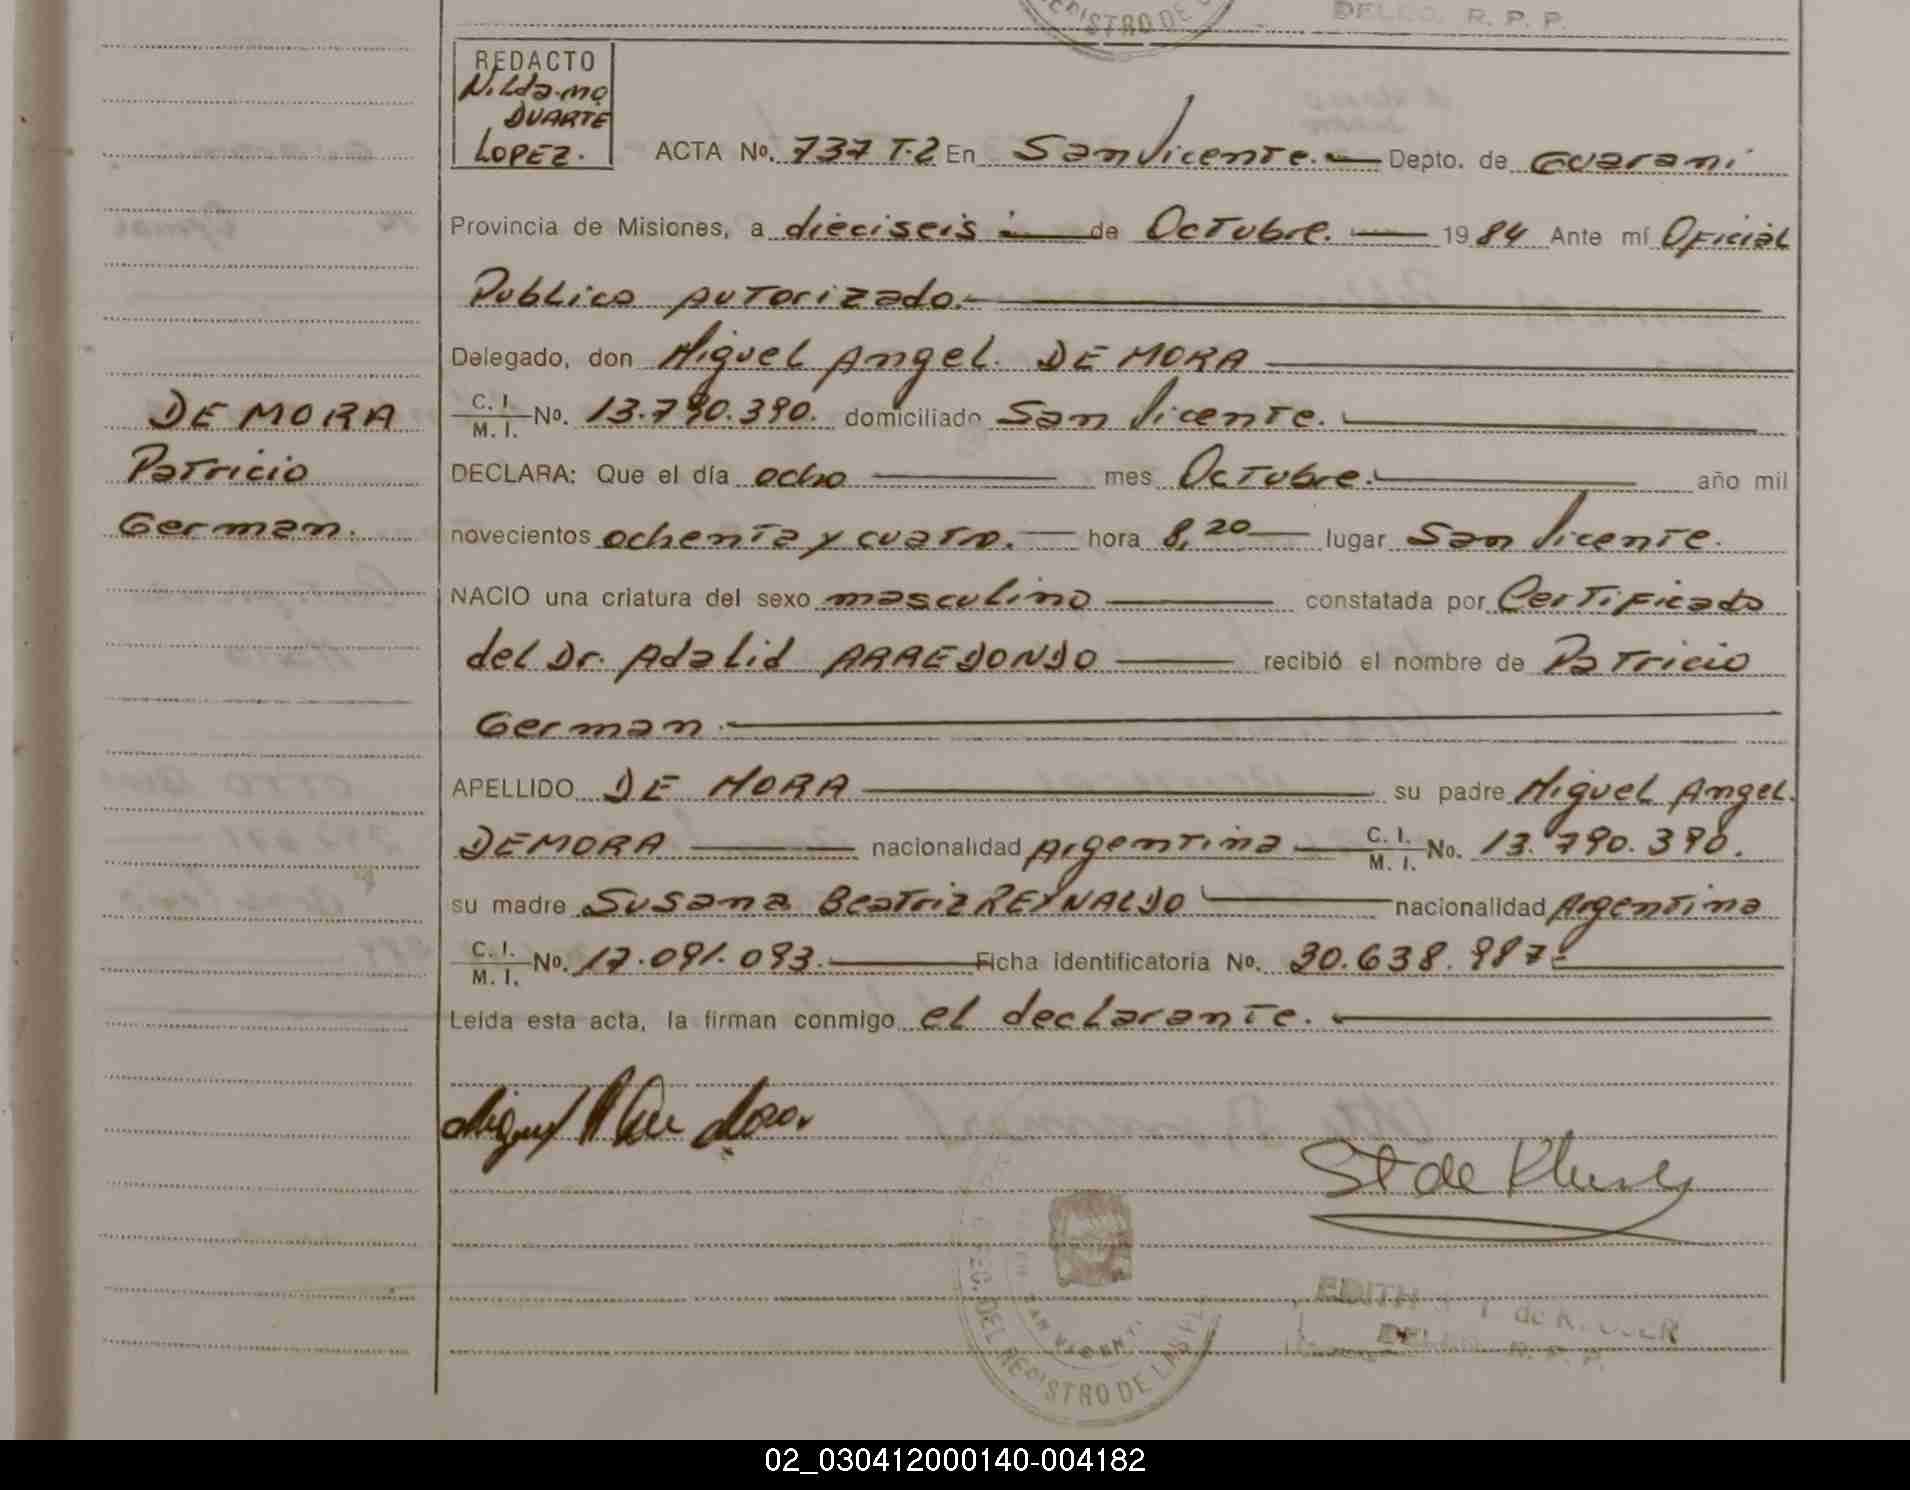 REGISTRO DE
DELEG. R. P. P.
REDACTO
Nilda Ma
DUARTE
LOPEZ.
ACTA No. 737 T.2 En San Vicente. Depto. de Guarani
Provincia de Misiones, a dieciseis de Octubre. 1984 Ante mí Oficial
Publico Autorizado.
Delegado, don Miguel Angel. DE MORA
DE MORA
Patricio
German.
C. I.
M. I. No. 13.790.390. domiciliado San Vicente.
DECLARA: Que el día ocho mes Octubre. año mil
novecientos ochenta y cuatro. hora 8,20 lugar San Vicente.
NACIO una criatura del sexo masculino constatada por Certificado
del Dr. Adalid ARREDONDO recibió el nombre de Patricio
German.
APELLIDO DE MORA su padre Miguel Angel.
DEMORA nacionalidad Argentina C. I.
M. I. No. 13.790.390.
su madre Susana Beatriz REYNALDO nacionalidad Argentina
C. I.
M. I. No. 17.091.093. Ficha identificatoria No. 30.638.987
Leída esta acta, la firman conmigo el declarante.
SAN VICENTE
DEL REGISTRO DE LAS
EDITH de
R. P. P.
02_030412000140-004182